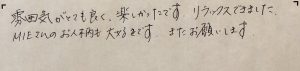 雰囲気がとても良く、楽しかったです。リラックスできました。
MIEさんのお人柄も大好きです。またお願いします。